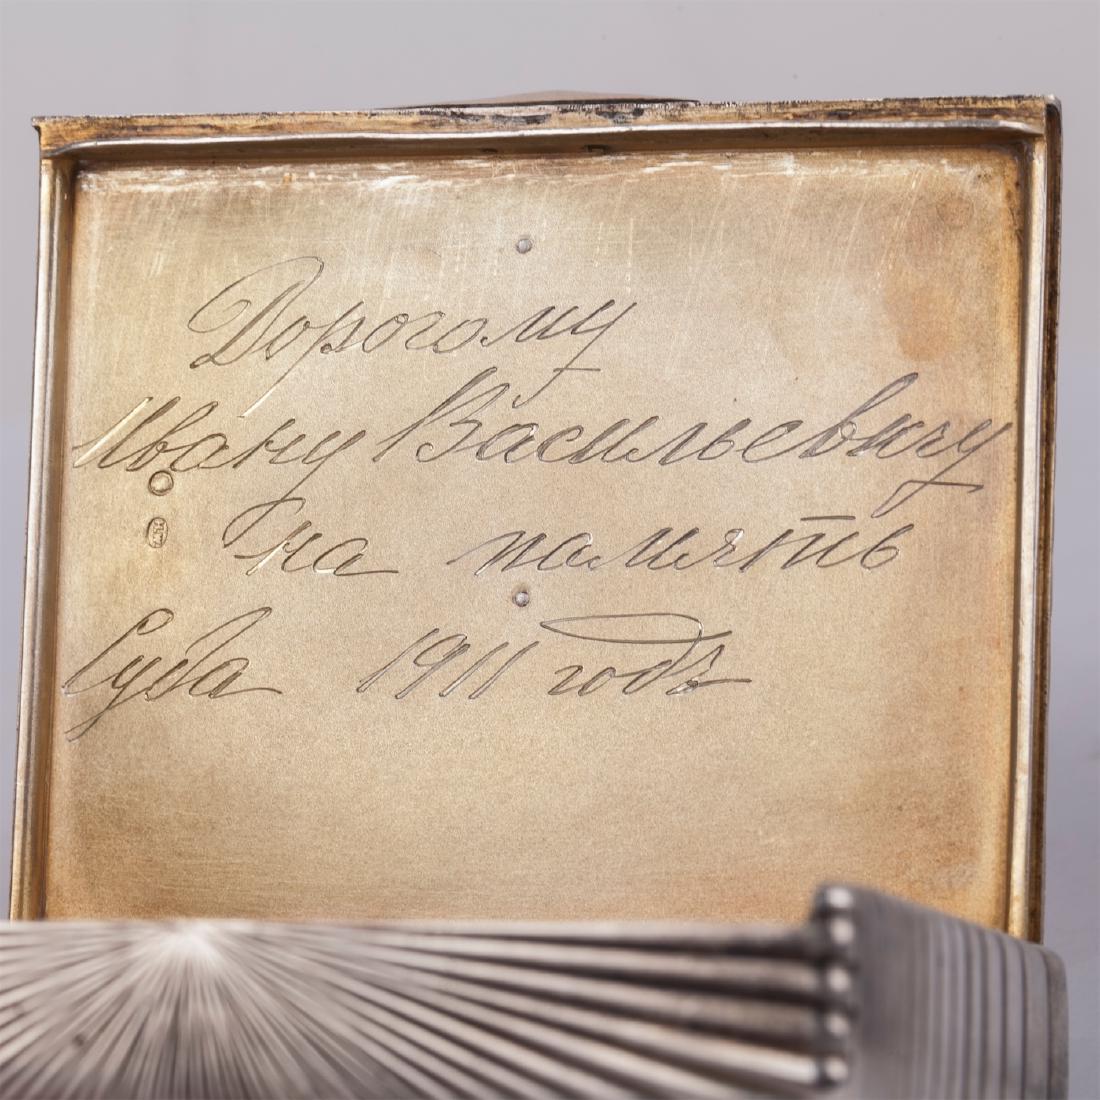 Дорогому
Ивану Васильевичу
на память
Суба 1911 годъ